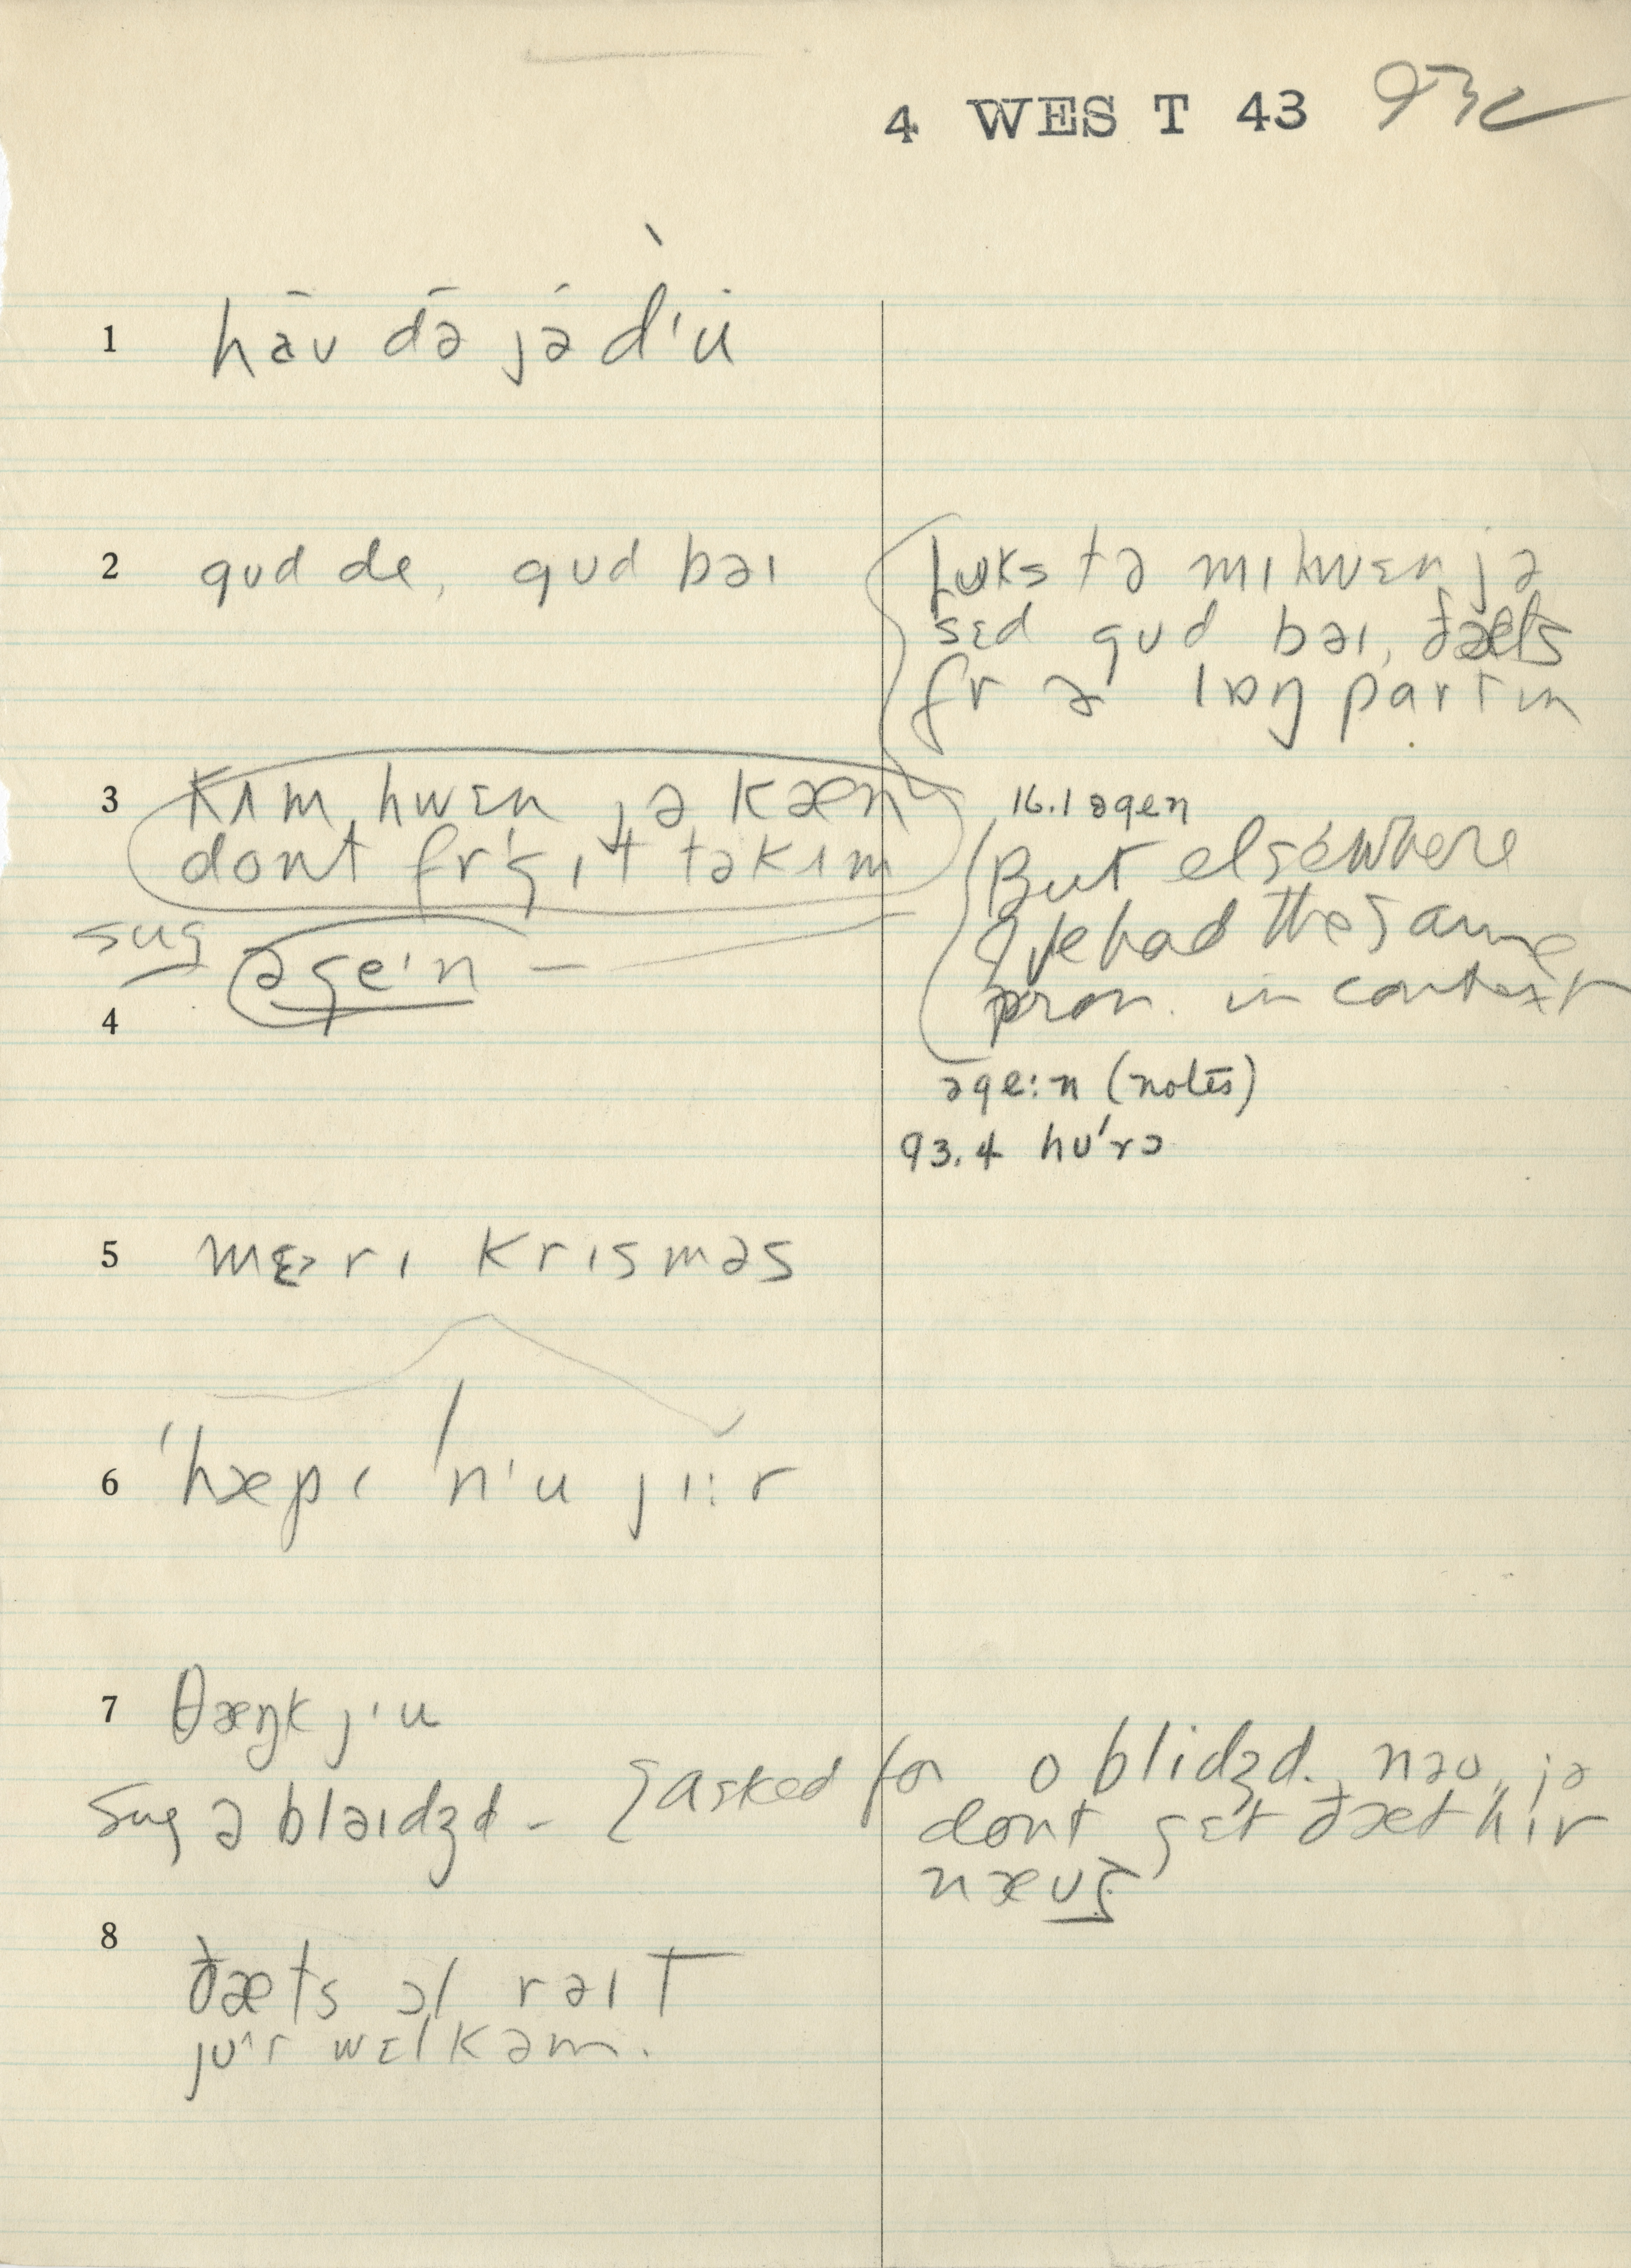 4 WEST 43 93c
1 hāʊ də̄ jə́ dˈu
2 gʊd de, gʊd bəɪ
lʊks tə mɪ hwɛn jə
sɛd gʊd bəɪ, ðæts
fr ə lɒŋ partɪn
3 kʌm hwɛn jə kæn
dont frˈgɪt tə kʌm
sug əgeˈn –
16.1 əgen
But elsewhere
I've had the same
pron. in context
əge:n (notes)
93.4 hʊˈrɔ
4
5 mɛrɪ krɪsməs
6 ˈhæpɪ ˈnˈu jɪːr
7 θæŋk jˈu
sug əbləɪdʒd – I asked for oblidʒd. nəʊ, jə
dont gɛt ðæt hɪr
næʊ
8 ðæts ɔl rəɪt
jʊˈr wɛlkəm.